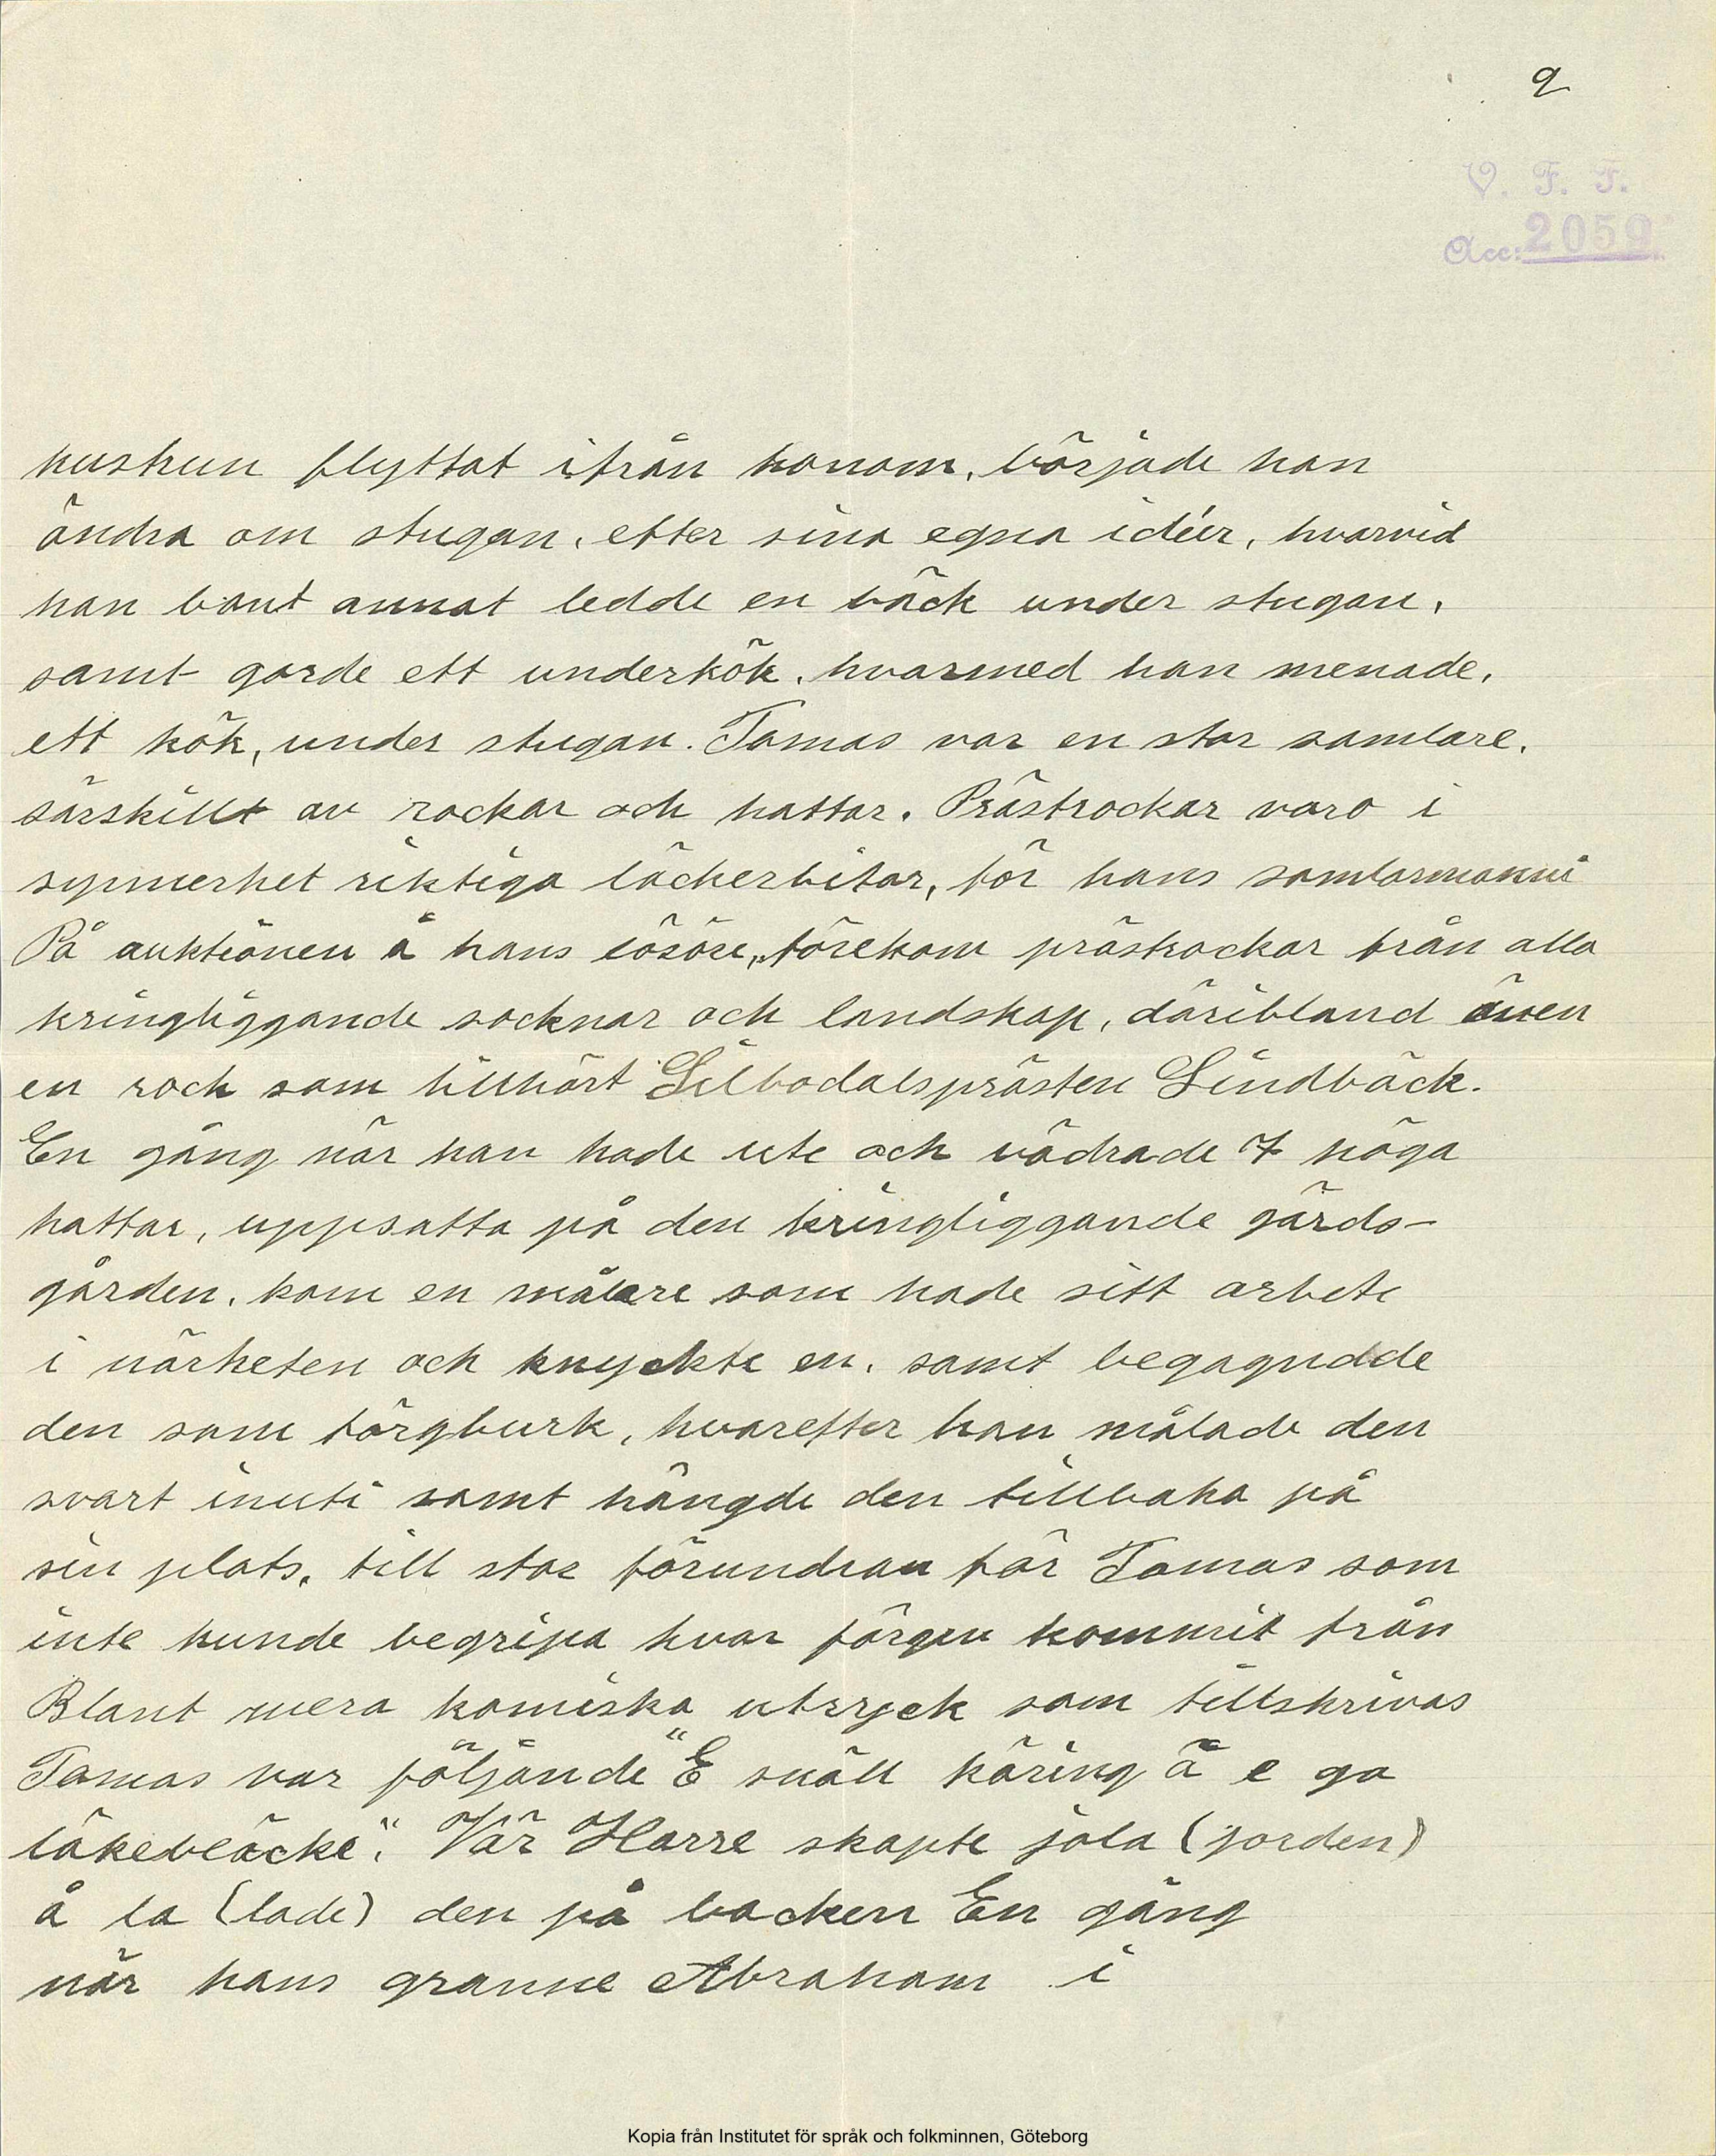 9
V. F. F.
Acc: 2059
hustrun flyttat ifrån honom, började han
ändra om stugan, efter sina egna idéer, hvarvid
han bant annat ledde en bäck under stugan,
samt gorde ett underkök, hvarmed han menade,
ett kök, under stugan. Tomas var en stor samlare,
särskillt av rockar och hattar. Prästrockar voro i
synnerhet riktiga läckerbitar, för hans samlarmani
På auktionen å hans lösöre, förekom prästrockar från alla
kringliggande socknar och landskap, däribland även
en rock som tillhört Silbodalsprästen Lindbäck.
En gång när han hade ute och vädrade 7 höga
hattar, uppsatta på den kringliggande gärds-
gården, kom en målare som hade sitt arbete
i närheten och knyckte en, samt begagnade
den som färgburk, hvarefter han målade den
svart inuti samt hängde den tillbaka på
sin plats, till stor förundran för Tomas som
inte kunde begripa hvar färgen kommit från
Blant mera komiska utryck som tillskrivas
Tomas var följande "E snäll käring ä e ga
läkebläcke". Vår Harre skapte jola (jorden)
å la (lade) den på backen En gång
när hans granne Abraham i
Kopia från Institutet för språk och folkminnen, Göteborg